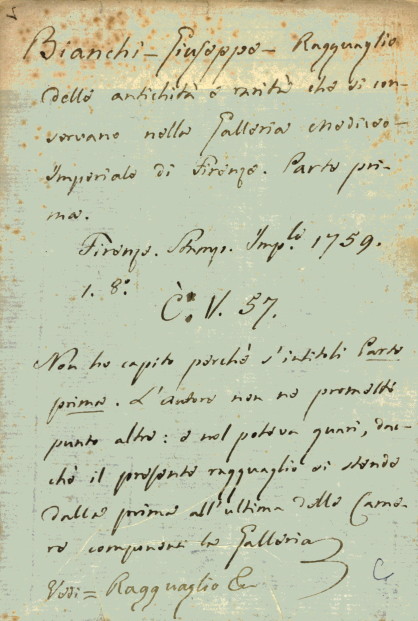 Bianchi - Giuseppe - Ragguaglio
delle antichità e rarità che si con-
servano nella Galleria Mediceo-
Imperiale di Firenze. Parte pri-
ma.
Firenze. Stamp. Imp.le 1759.
1. 8.°
È. V. 57.
Non ho capito perchè s'intitoli Parte
prima. L'autore non ne promette
punto altre: e nol poteva guari, dac-
chè il presente ragguaglio si stende
dalla prima all'ultima delle Came-
re componenti la Galleria
Vedi = Ragguaglio &c